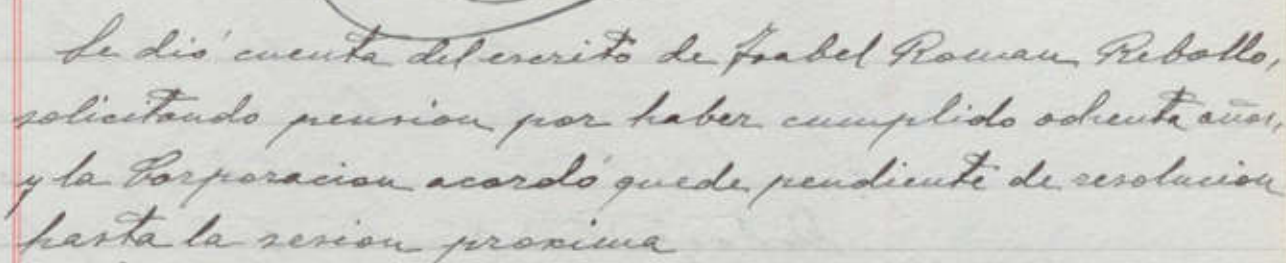 Se dió cuenta del escrito de Isabel Roman Rebollo,
solicitando pension por haber cumplido ochenta años,
y la Corporacion acordó quede pendiente de resolucion
hasta la sesion proxima